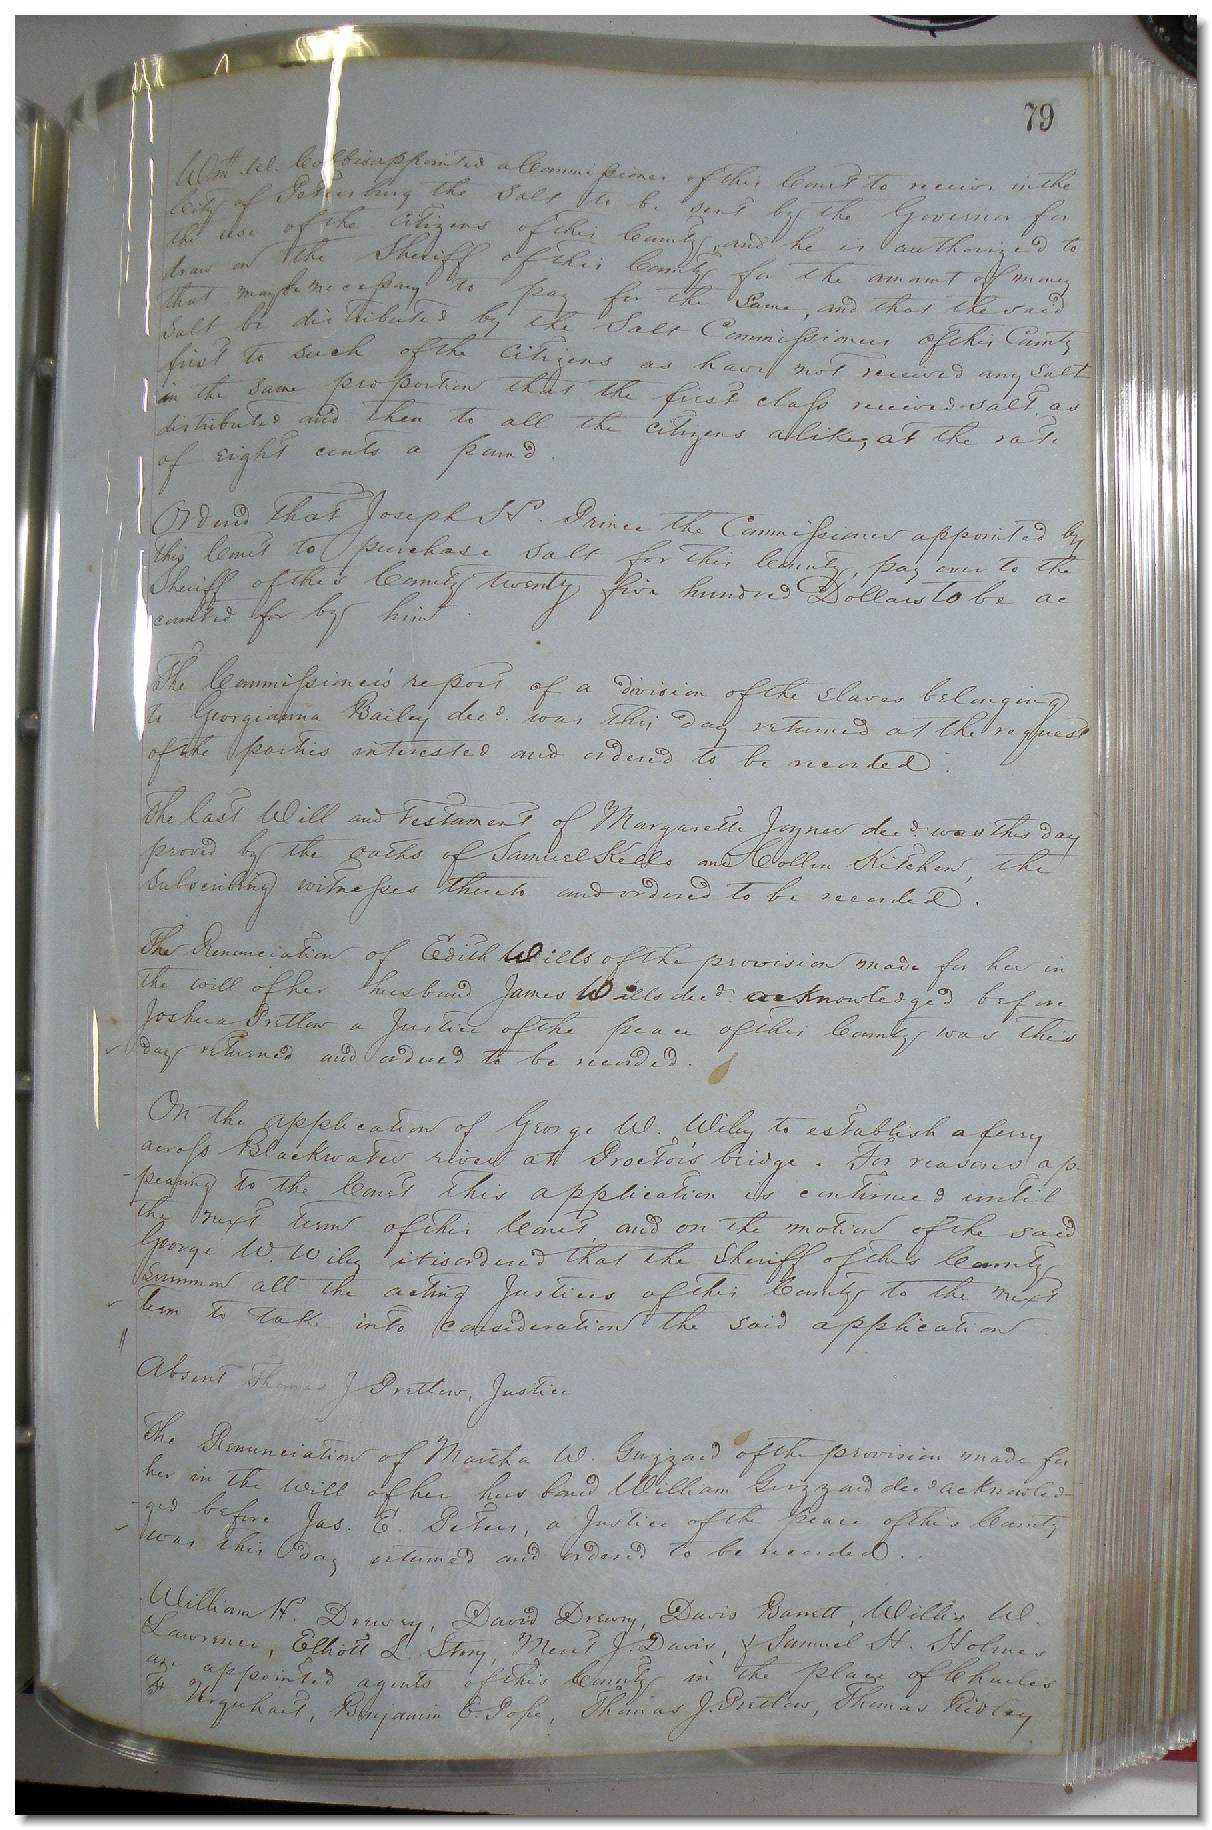 79
Wm W. Cobb is appointed a Commissioner of this Court to receive in the
City of Petersburg the Salt to be sent by the Governor for
the use of the Citizens of this County, and he is authorized to
draw on the Sheriff of this County for the amount of money
that may be necessary to pay for the Same, and that the said
Salt be distributed by the Salt Commissioners of this County
first to such of the Citizens as have not received any salt
in the same proportion that the first class received salt as
distributed and then to all the citizens alike, at the rate
of eight cents a pound.
Ordered that Joseph H. Prince the Commissioner appointed by
this Court to purchase salt for this County, pay over to the
Sheriff of this County twenty five hundred Dollars to be ac
counted for by him
The Commissioners report of a division of the slaves belonging
to Georgianna Bailey decd. was this day returned at the request
of the parties interested and ordered to be recorded.
The last Will and Testament of Margarette Joyner decd. was this day
proved by the oaths of Samuel Kello and Collin Kitchen, the
subscribing witnesses thereto and ordered to be recorded.
The Renunciation of Edith Wills of the provision made for her in
the will of her husband James Wills decd. acknowledged before
Joshua Pretlow a Justice of the peace of this County was this
day returned and ordered to be recorded.
On the application of George W. Wiley to establish a ferry
across Blackwater river at Proctors bridge. For reasons ap-
pearing to the Court this application is continued until
the next term of this Court and on the motion of the said
George W. Wiley it is ordered that the Sheriff of this County
summon all the acting Justices of this County to the next
term to take into consideration the said application
Absent Thomas J Pretlow, Justice
The Renunciation of Martha W. Grizzard of the provision made for
her in the will of her husband William Grizzard decd acknowled-
ged before Jas. E. Peters, a Justice of the peace of this County
was this day returned and ordered to be recorded.
William H. Drewry, David Drewry, Davis Barrett, Willis W.
Lawrence, Elliott L. Story, Merit J. Davis, & Samuel H. Holmes
are appointed agents of this County in the place of Charles
F. Urquhart, Benjamin E. Pope, Thomas J. Pretlow, Thomas Ridley